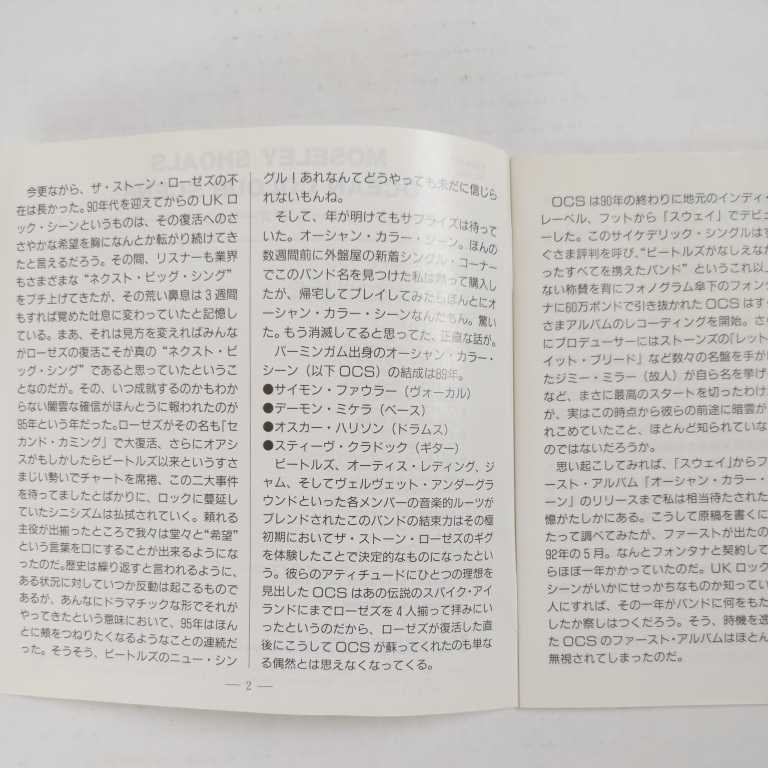 今更ながら、ザ・ストーン・ローゼズの不
在は長かった。90年代を迎えてからのＵＫロ
ック・シーンというものは、その復活へのさ
さやかな希望を胸になんとか転がり続けてき
たと言えるだろう。その間、リスナーも業界
もさまざまな“ネクスト・ビッグ・シング”
をブチ上げてきたが、その荒い鼻息は３週間
もすれば覚めた吐息に変わっていたと記憶し
ている。まあ、それは見方を変えればみんな
がローゼズの復活こそが真の“ネクスト・ビ
ッグ・シング”であると思っていたというこ
となのだが。その、いつ成就するのかもわか
らない闇雲な確信がほんとうに報われたのが
95年という年だった。ローゼズがその名も『セ
カンド・カミング』で大復活、さらにオアシ
スがもしかしたらビートルズ以来というすさ
まじい勢いでチャートを席捲、この二大事件
を待ってましたとばかりに、ロックに蔓延し
ていたシニシズムは払拭されていく。頼れる
主役が出揃ったところで我々は堂々と“希望”
という言葉を口にすることが出来るようにな
ったのだ。歴史は繰り返すと言われるように、
ある状況に対していつか反動は起こるもので
あるが、あんなにドラマチックな形でそれが
やってきたという意味において、95年はほん
とに頬をつねりたくなるようなことの連続だ
った。そうそう、ビートルズのニュー・シン
グル！あれなんてどうやっても未だに信じら
れないもんね。
そして、年が明けてもサプライズは待って
いた。オーシャン・カラー・シーン。ほんの
数週間前に外盤屋の新着シングル・コーナー
でこのバンド名を見つけた私は黙って購入し
たが、帰宅してプレイしてみたらほんとにオ
ーシャン・カラー・シーンなんだもん。驚い
た。もう消滅してると思ってた、正直な話が。
バーミンガム出身のオーシャン・カラー・
シーン（以下ＯＣＳ）の結成は89年。
●サイモン・ファウラー（ヴォーカル）
●デーモン・ミケラ（ベース）
●オスカー・ハリソン（ドラムス）
●スティーヴ・クラドック（ギター）
ビートルズ、オーティス・レディング、ジ
ャム、そしてヴェルヴェット・アンダーグラ
ウンドといった各メンバーの音楽的ルーツが
ブレンドされたこのバンドの結束力はその極
初期においてザ・ストーン・ローゼズのギグ
を体験したことで決定的なものになったとい
う。彼らのアティチュードにひとつの理想を
見出したＯＣＳはあの伝説のスパイク・アイ
ランドにまでローゼズを４人揃って拝みにい
ったというのだから、ローゼズが復活した直
後にこうしてＯＣＳが蘇ってくれたのも単な
る偶然とは思えなくなってくる。
— 2 —
ＯＣＳは90年の終わりに地元のインディ
レーベル、フットから「スウェイ」でデビ
ーした。このサイケデリック・シングルはす
ぐさま評判を呼び、“ビートルズがなしえなか
ったすべてを携えたバンド”というこれ以
ない称賛を背にフォノグラム傘下のフォンタ
ナに60万ポンドで引き抜かれたＯＣＳはす
さまアルバムのレコーディングを開始。さ
にプロデューサーにはストーンズの『レット
イット・ブリード』など数々の名盤を手が
たジミー・ミラー（故人）が自ら名を挙げ
など、まさに最高のスタートを切ったわけ
が、実はこの時点から彼らの前途に暗雲が
れこめていたこと、ほとんど知られていな
のではないだろうか。
思い起こしてみれば、「スウェイ」からフ
ァースト・アルバム『オーシャン・カラー・
ーン』のリリースまで私は相当待たされた
憶がたしかにある。こうして原稿を書くに
たって調べてみたが、ファーストが出たの
92年の５月。なんとフォンタナと契約して
らほぼ一年かかっていたのだ。ＵＫロック
シーンがいかにせっかちなものか知ってい
人にすれば、その一年がバンドに何をもた
したか察しはつくだろう。そう、時機を逸
たＯＣＳのファースト・アルバムはほとん
無視されてしまったのだ。